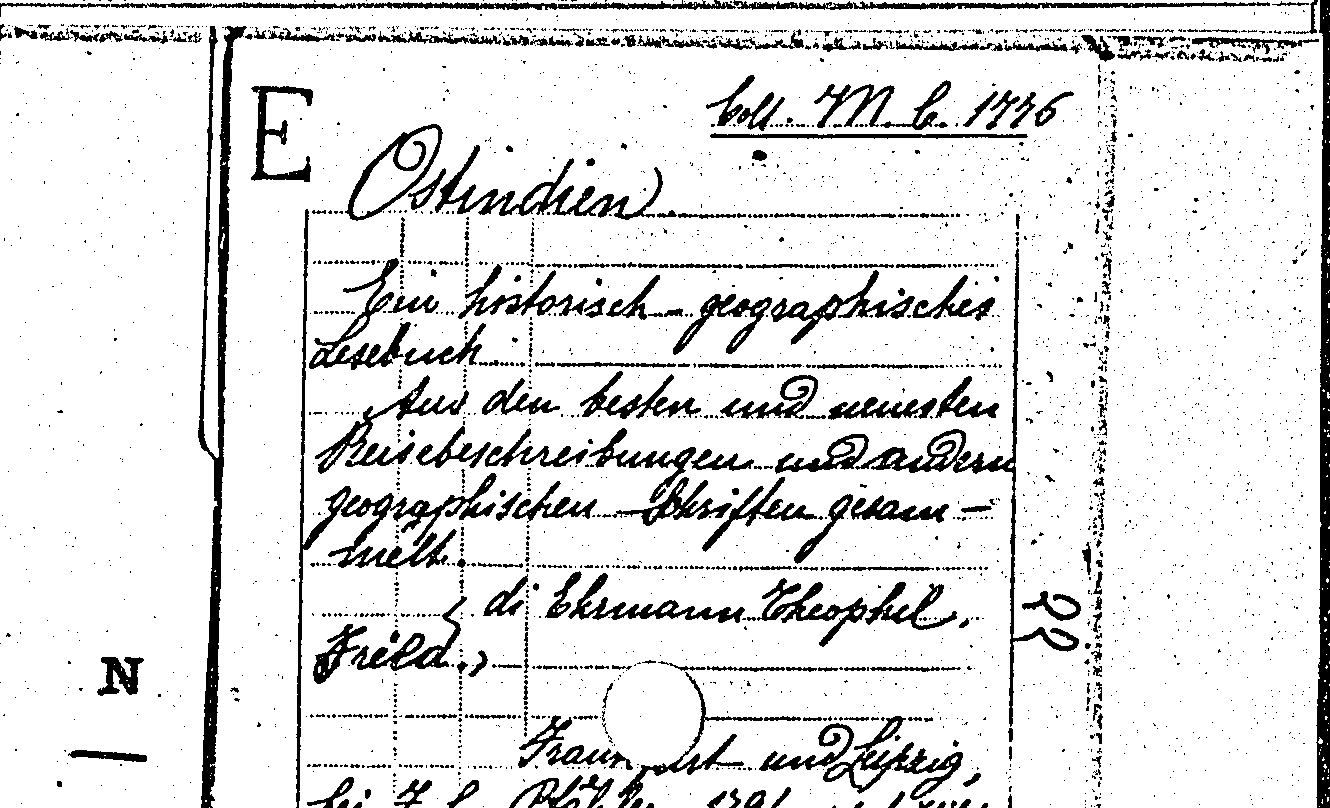 E
Coll. M. C. 1776
Ostindien.
Ein historisch - geographisches
Lesebuch.
Aus den besten und neuesten
Reisebeschreibungen und andern
geographischen Schriften gesam-
melt.
( di Ehrmann Theophil.
Fried.)
22
N
und Leipzig,
bei